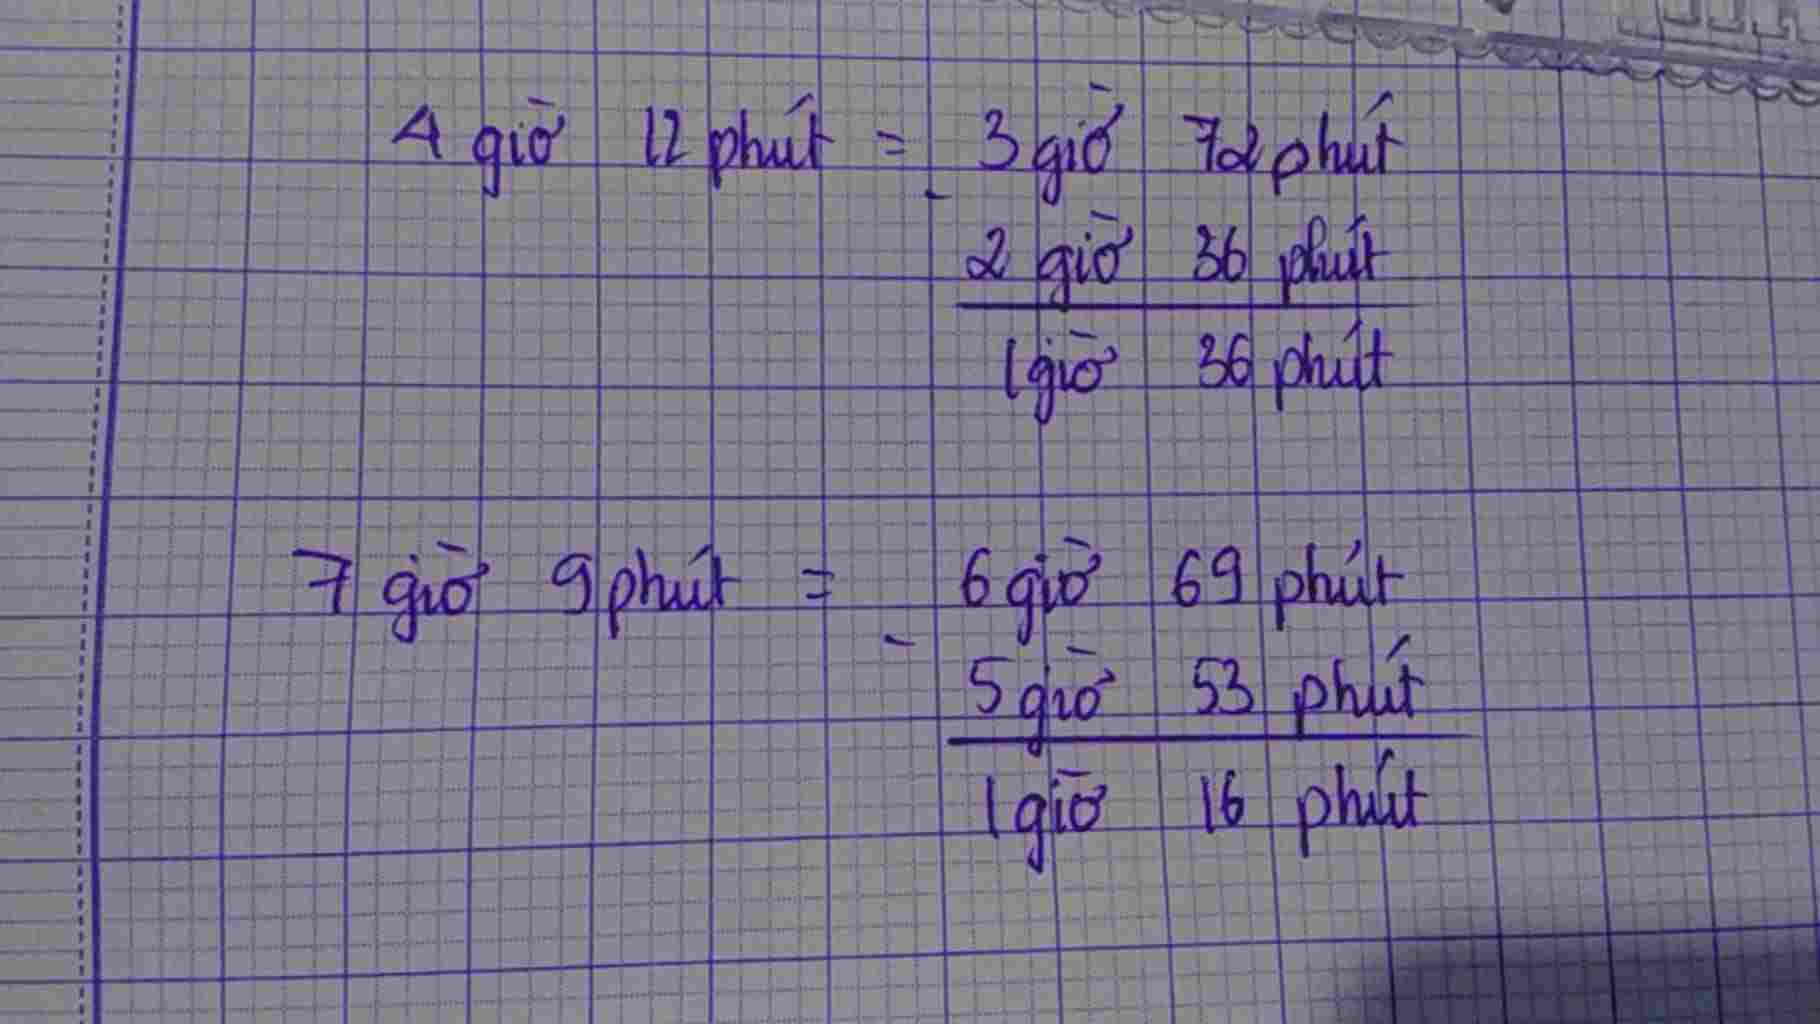 4 giờ 12 phút = 3 giờ 72 phút
-
2 giờ 36 phút
1 giờ 36 phút
7 giờ 9 phút = 6 giờ 69 phút
-
5 giờ 53 phút
1 giờ 16 phút